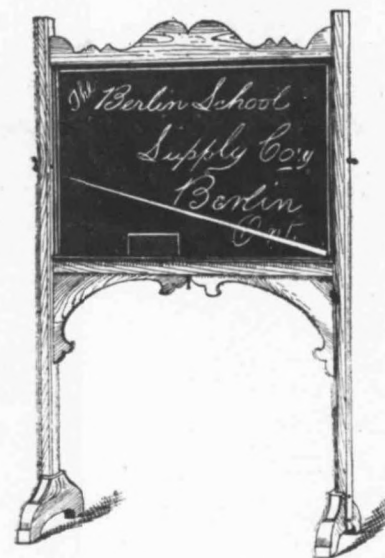 The Berlin School
Supply Co'y
Berlin
Ont.